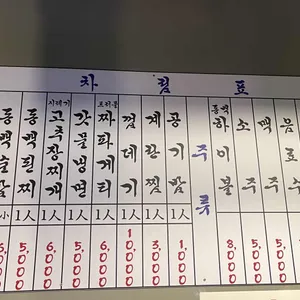 차림표
小
6,000
동백된찌
1人
5,000
시래기
고추장찌개
1人
6,000
1人
5,000
트러플
짜파게티
1人
6,000
껍데기
1人
10,000
계란찜
1人
3,000
공기밥
1人
1,000
주류
동백
하이볼
8,000
소주
5,000
맥주
5,000